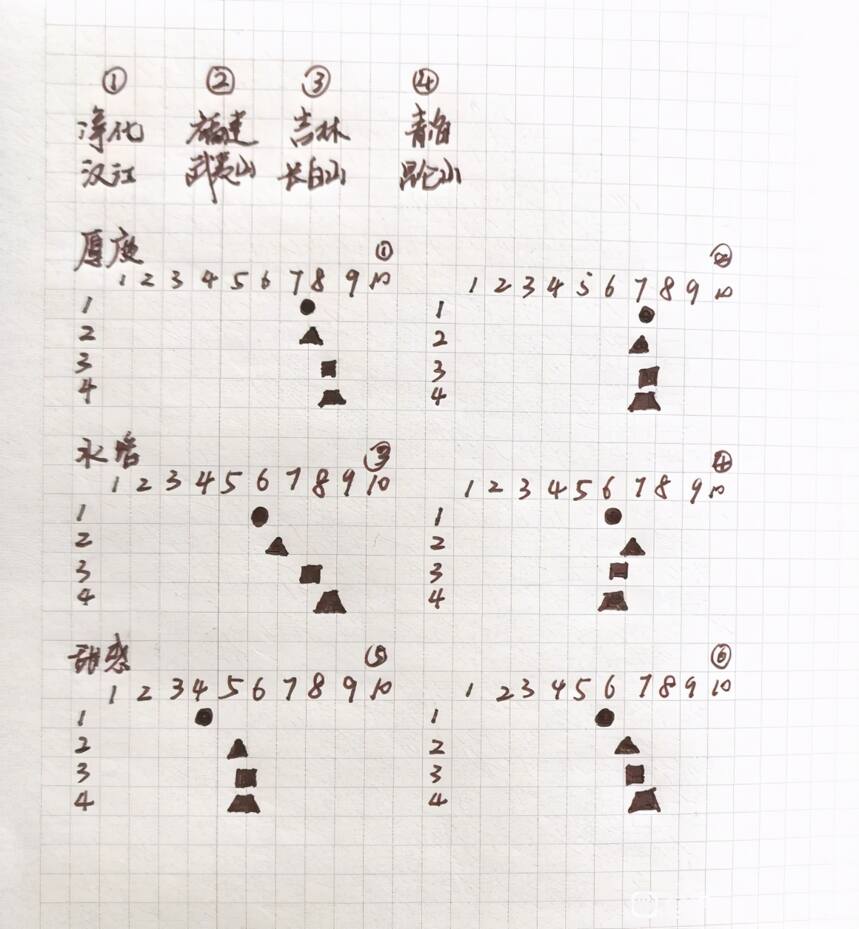 ① ② ③ ④
净化 福建 吉林 青海
汉江 武夷山 长白山 昆仑山
厚度 ① ②
1 2 3 4 5 6 7 8 9 10 1 2 3 4 5 6 7 8 9 10
1 1
2 2
3 3
4 4
水路 ③ ④
1 2 3 4 5 6 7 8 9 10 1 2 3 4 5 6 7 8 9 10
1 1
2 2
3 3
4 4
甜感 ⑤ ⑥
1 2 3 4 5 6 7 8 9 10 1 2 3 4 5 6 7 8 9 10
1 1
2 2
3 3
4 4